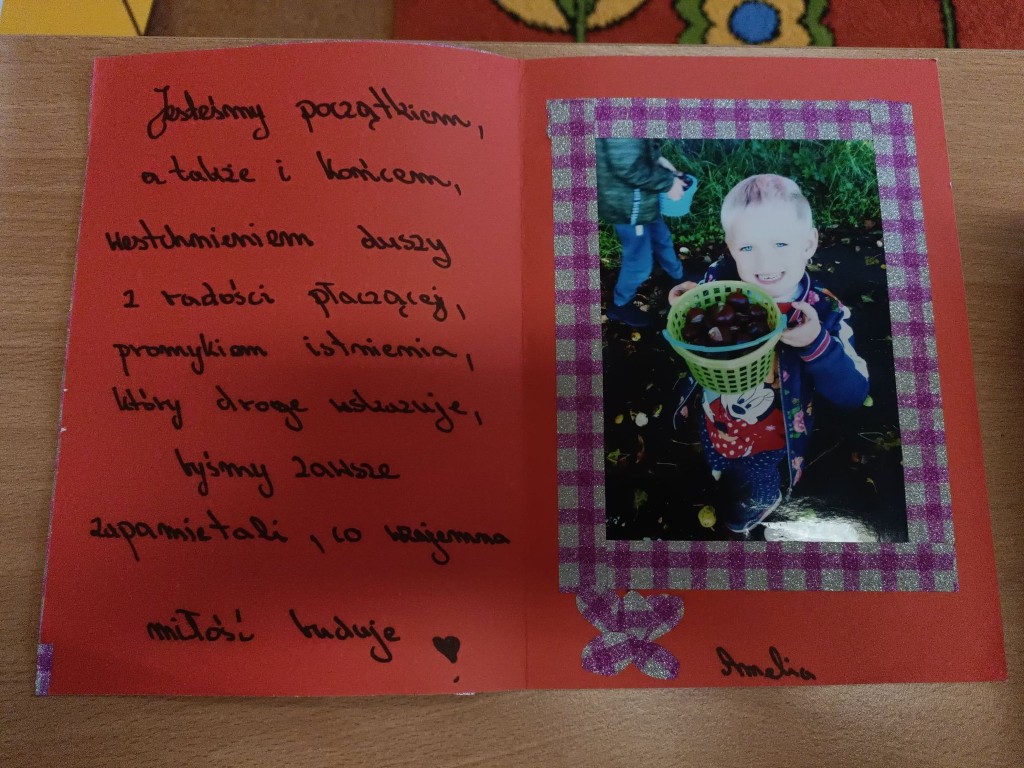 Jesteśmy początkiem,
a także i końcem,
westchnieniem duszy
z radości płaczącej,
promykiem istnienia,
który drogę wskazuje,
byśmy zawsze
zapamiętali, co wzajemna
miłość buduje
Amelia